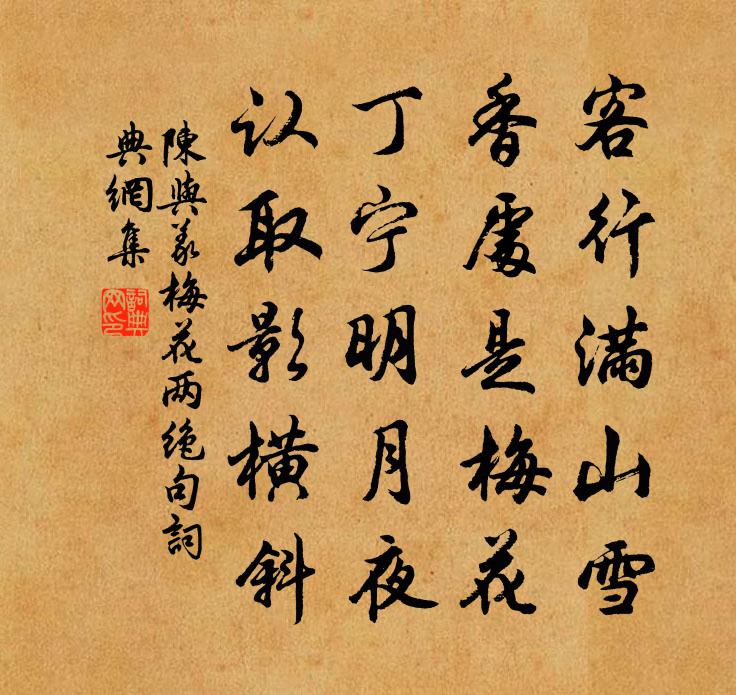 客行满山雪
香处是梅花
丁宁明月夜
认取影横斜
陳與义梅花两绝句詞
典網集
詞典网印